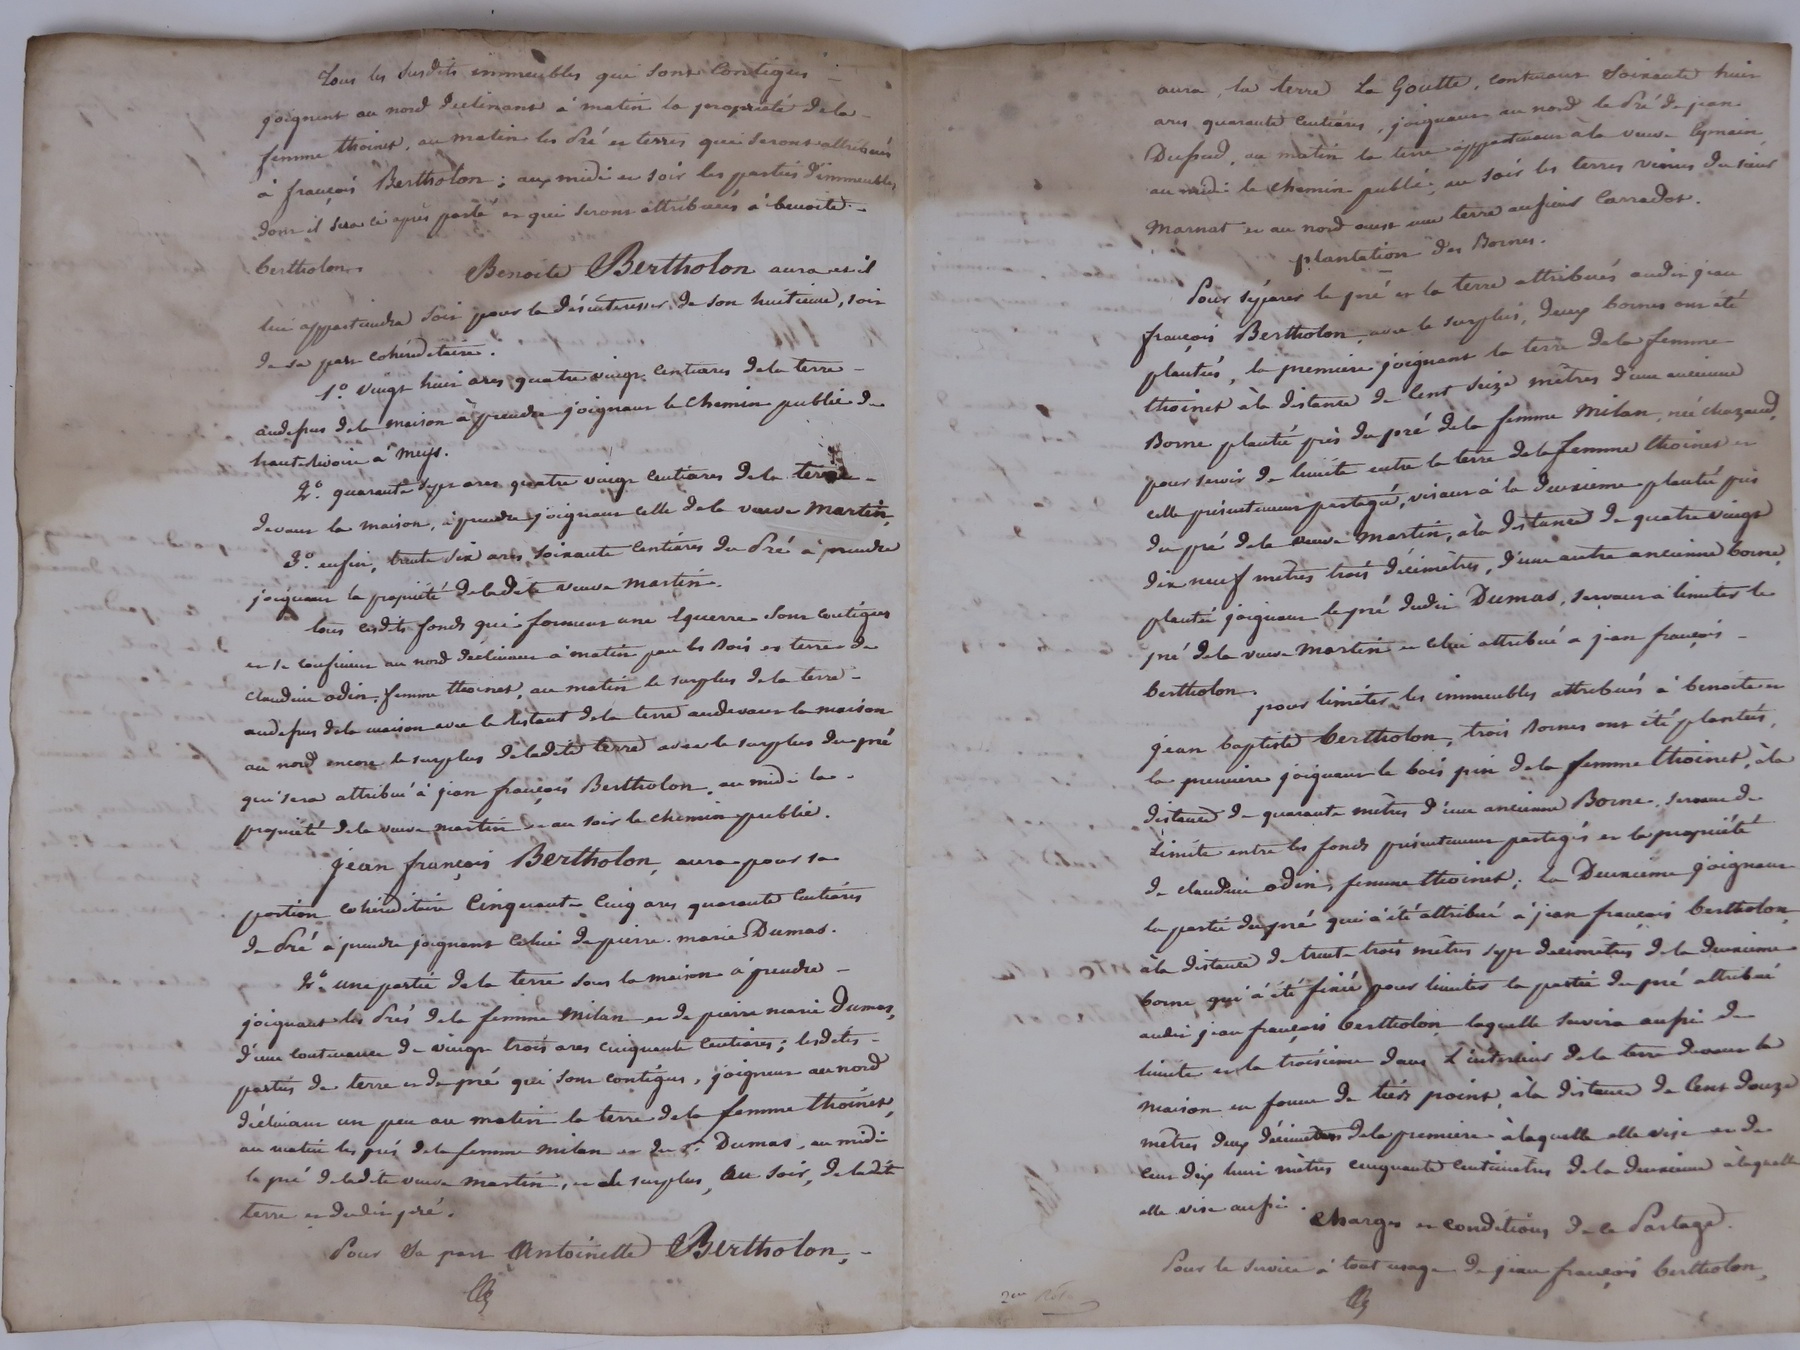 Tous les susdits immeubles qui sont Contigus
joignent au nord declinant à matin la propriété de la
femme thoinet, au matin les Pré et terres qui seront attribués
à françois Bertholon; aux midi et soir les parties d'immeubles
dont il sera ci après parlé et qui seront attribuées à benoite
bertholon.
Benoite Bertholon aura et il
lui appartiendra soit pour la désinteresser de son huitieme, soit
de sa part cohéréditaire.
1º. vingt huit ares quatre vingt centiares de la terre
audessus de la maison à prendre joignant le chemin public de
hauterivoire à Meys.
2º. quarante sept ares quatre vingt centiares de la terre
devant la maison, à prendre joignant celle de la veuve Martin,
3º. enfin, trente six ares, soixante Centiares du Pré à prendre
joignant la propriété de ladite veuve Martin.
tous cesdits fonds qui forment une Equerre sont contigus
et se confinent au nord déclinant à matin par les bois et terre de
Claudine odin, femme thoinet, au matin le surplus de la terre
audessus de la maison avec le restant de la terre audevant la maison
au nord encore le surplus de ladite terre avec le surplus du pré
qui sera attribué à jean françois Bertholon, au midi la
propriété de la veuve martin et au soir le chemin public.
jean françois Bertholon, aura pour sa
portion cohéréditaire Cinquante Cinq ares quarante Centiares
de Pré à prendre joignant celui de pierre marie Dumas.
2º. une partie de la terre sous la maison à prendre
joignant les Prés de la femme Milan et de pierre marie Dumas,
d'une contenance de vingt trois ares cinquante Centiares; lesdites
parties de terre et de pré qui sont contigus, joignent au nord
déclinant un peu au matin la terre de la femme thoinet,
au matin les prés de la femme milan et du sr. Dumas, au midi
le pré de ladite veuve martin, et du surplus, au soir, de ladite
terre et dudit pré.
Pour sa part Antoinette Bertholon,
aura la terre La Goutte, contenant Soixante huit
ares quarante Centiares, joignant au nord le Pré de jean
au matin la terre appartenant à la veuve
au midi le chemin public, au soir les terres vieines du sieur
Marnat et au nord ouest une terre au sieur Carradot.
plantation des Bornes.
Pour séparer le pré et la terre attribués audit jean
françois Bertholon, avec le surplus, deux bornes ont été
plantées, la premiere joignant la terre de la femme
thoinet à la distance de Cent Seize mètres d'une ancienne
Borne plantée près du pré de la femme Milan, née chazaud,
pour servir de limite entre la terre de la femme thoinet et
celle présentement partagée, visant à la deuxieme plantée près
du pré de la veuve Martin, à la distance de quatre vingt
dix neuf mètres trois décimètres, d'une autre ancienne borne,
plantée joignant le pré dudit Dumas, servant à limiter le
pré de la veuve Martin et celui attribué a jean françois
bertholon.
pour limiter les immeubles attribués à benoite et
jean baptiste bertholon, trois bornes ont été plantées,
la premiere joignant le bois pin de la femme thoinet, à la
distance de quarante mètres d'une ancienne Borne, servant de
Limite entre les fonds présentement partagés et la propriété
de claudine odin, femme thoinet; La Deuxieme joignant
la partie du pré qui à été attribué à jean françois bertholon,
à la distance de trente trois mètres sept decimètres de la deuxieme
borne qui à été fixée pour limiter la partie du pré attribué
audit jean françois bertholon laquelle servira aussi de
limite et la troisieme dans L'interieur de la terre devant la
Maison en forme de tiers point, à la distance de Cent douze
mètres deux décimètres de la premiere à laquelle elle vise et de
cent dix huit mètres cinquante Centimètres de la deuxieme à laquelle
elle vise aussi.
Charges et conditions de ce Partage.
Pour le service à tout usage de jean françois bertholon,